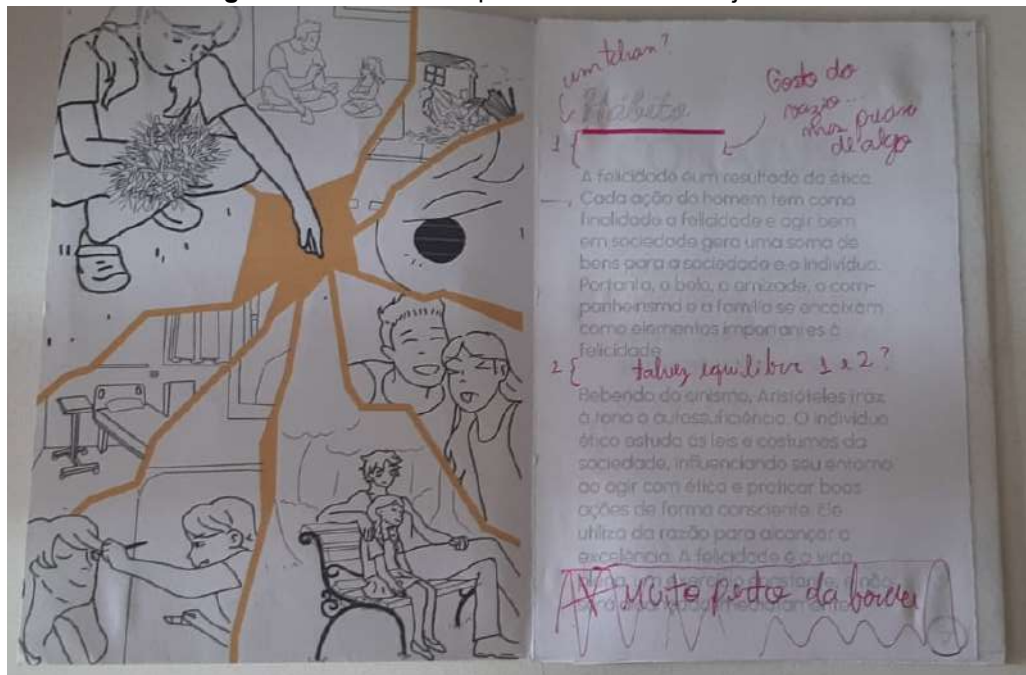 um tchan?
Hábito
Gosto do
vazio...
mas precisa
de algo
1
A felicidade é um resultado da ética.
Cada ação do homem tem como
finalidade a felicidade e agir bem
em sociedade gera uma soma de
bens para a sociedade e o indivíduo.
Portanto, o belo, a amizade, o com-
panheirismo e a família se encaixam
como elementos importantes à
felicidade
2
talvez equilibrar 1 e 2?
Bebendo do cinismo, Aristóteles traz
à tona a autossuficiência. O indivíduo
ético estuda as leis e costumes da
sociedade, influenciando seu entorno
ao agir com ética e praticar boas
ações de forma consciente. Ele
utiliza da razão para alcançar a
excelência. A felicidade é a vida
plena, um exercício constante, e não
Muito perto da borda